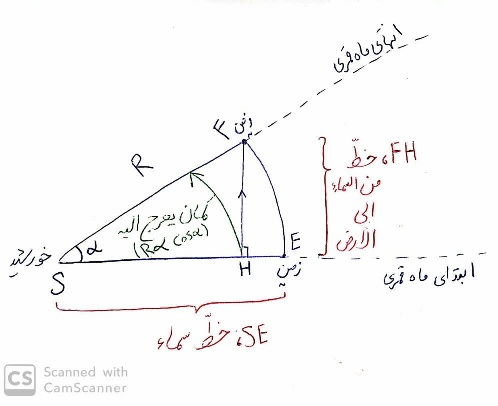 انتهای ماه قمری
F زمین
R
کمان یعرج الیه
(Rα cosα)
α
خورشید
S
H
E
زمین
FH، خطّ
من السماء
الی
الارض
ابتدای ماه قمری
SE، خطّ سماء
CS Scanned with
CamScanner